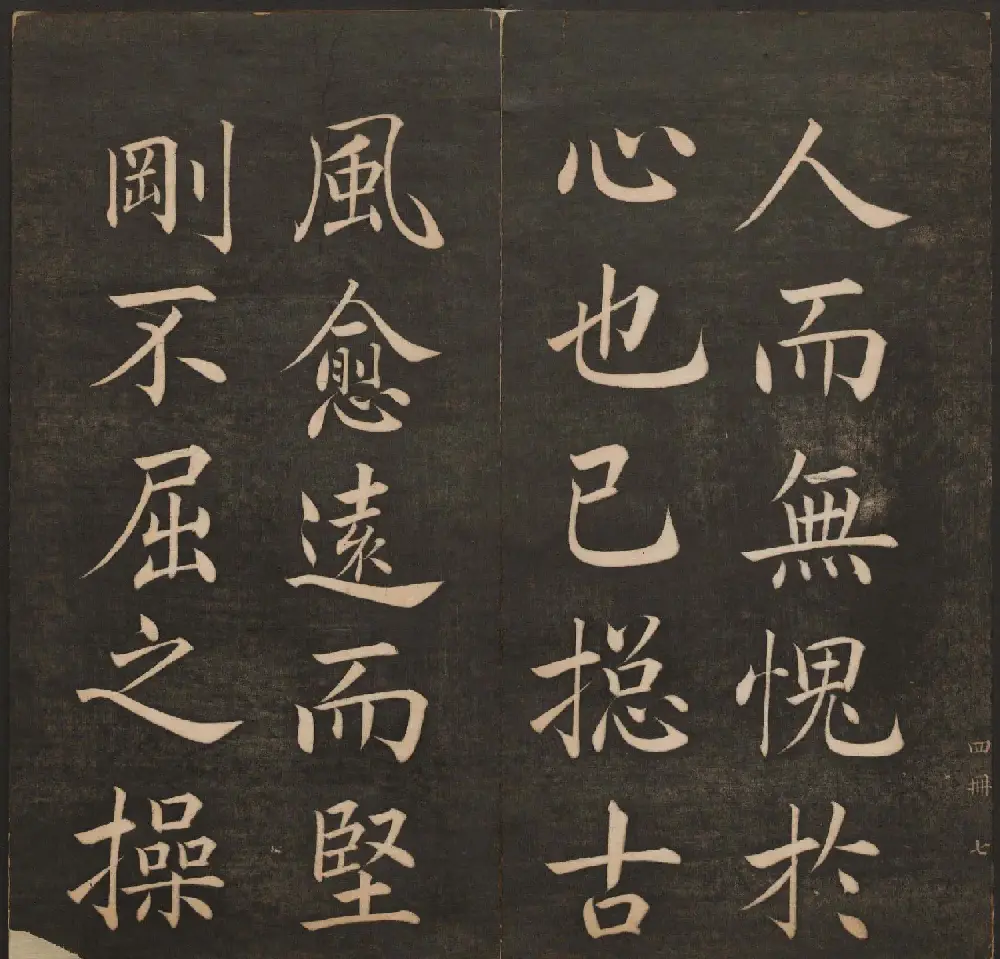 人而無愧於
心也已揔古
風愈遠而堅
剛不屈之操
四冊 七